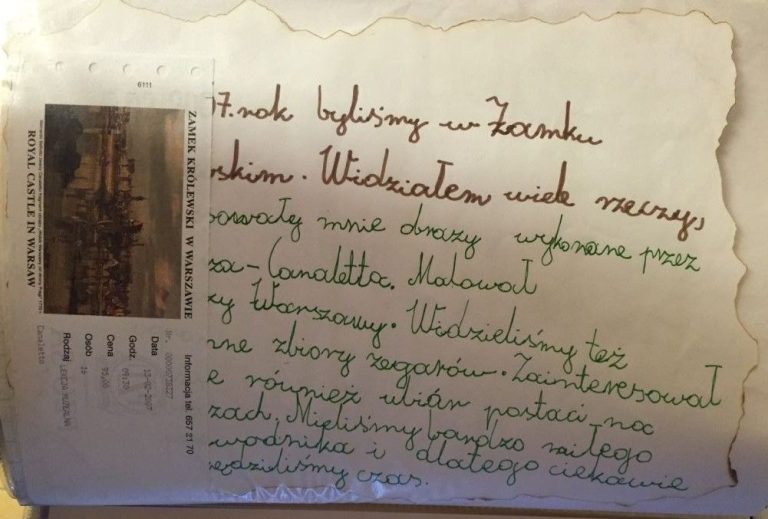 6111
ZAMEK KRÓLEWSKI W WARSZAWIE
ROYAL CASTLE IN WARSAW
Informacja tel. 657 21 70
Nr.
Data 13-02-2007
Godz 09:30
Cena
Osób 16
Rodzaj LEKCJA MUZEALNA
Canaletto
07.rok byliśmy w Zamku
rskim. Widziałem wiele rzeczy,
sowały mnie obrazy wykonane przez
za-Canaletta. Malował
zy Warszawy. Widzieliśmy też
nne zbiory zegarów. Zainteresował
e również ubiór postaci na
zach. Mieliśmy bardzo miłego
wodnika i dlatego ciekawie
ędziliśmy czas.